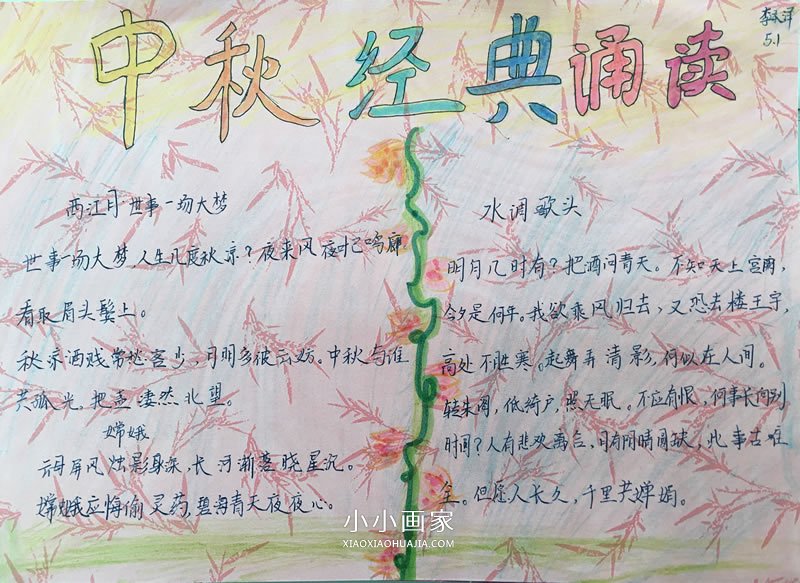 中秋经典诵读
5.1
西江月 世事一场大梦
世事一场大梦,人生几度秋凉?夜来风夜忆鸣廊
看取眉头鬓上。
秋凉酒贱常愁客少,月明多被云妨。中秋与谁
共孤光,把盏凄然北望。
嫦娥
云母屏风烛影深,长河渐落晓星沉。
嫦娥应悔偷灵药,碧海青天夜夜心。
水调歌头
明月几时有?把酒问青天。不知天上宫阙,
今夕是何年。我欲乘风归去,又恐去楼王宇,
高处不胜寒。起舞弄清影,何似在人间。
转朱阁,低绮户,照无眠。不应有恨,何事长向别
时圆?人有悲欢离合,月有阴晴圆缺,此事古难
全。但愿人长久,千里共婵娟。
小小画家
XIAOXIAOHUAJIA.COM